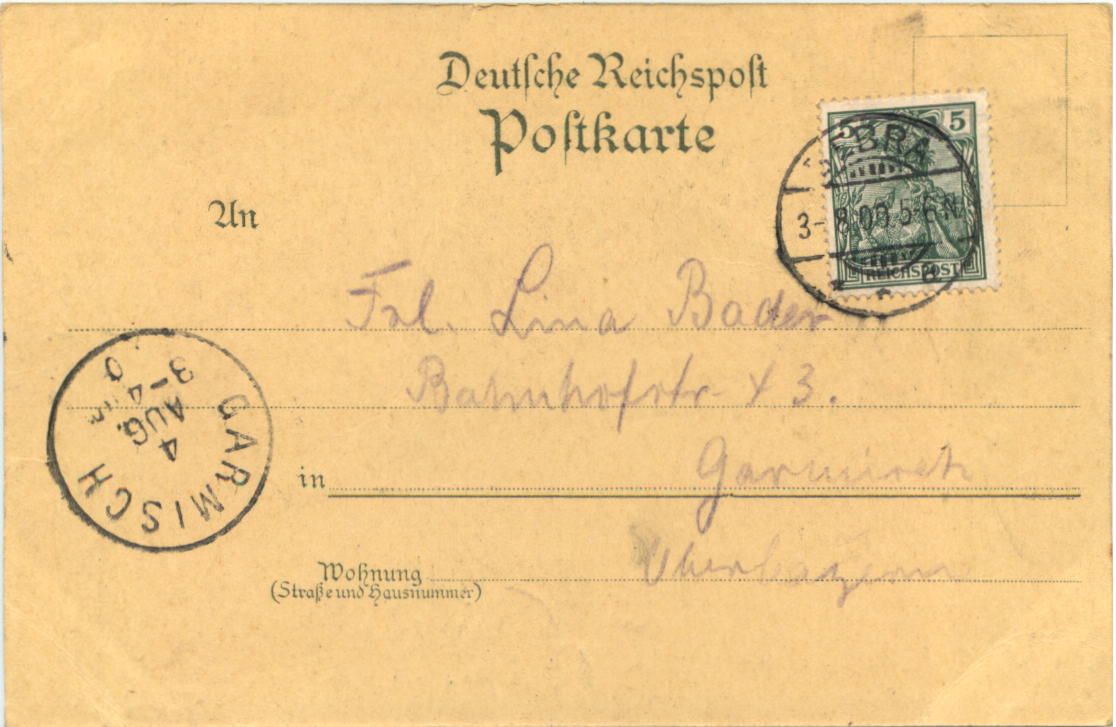 Deutsche Reichspost
Postkarte
5 5
BRA
3-8.00.5-6N.
REICHSPOST
An
Frl. Lina Bader
Bahnhofstr. 43.
in Garmisch
Oberbayern
Wohnung
(Straße und Hausnummer)
GARMISCH
4
AUG.
3-4